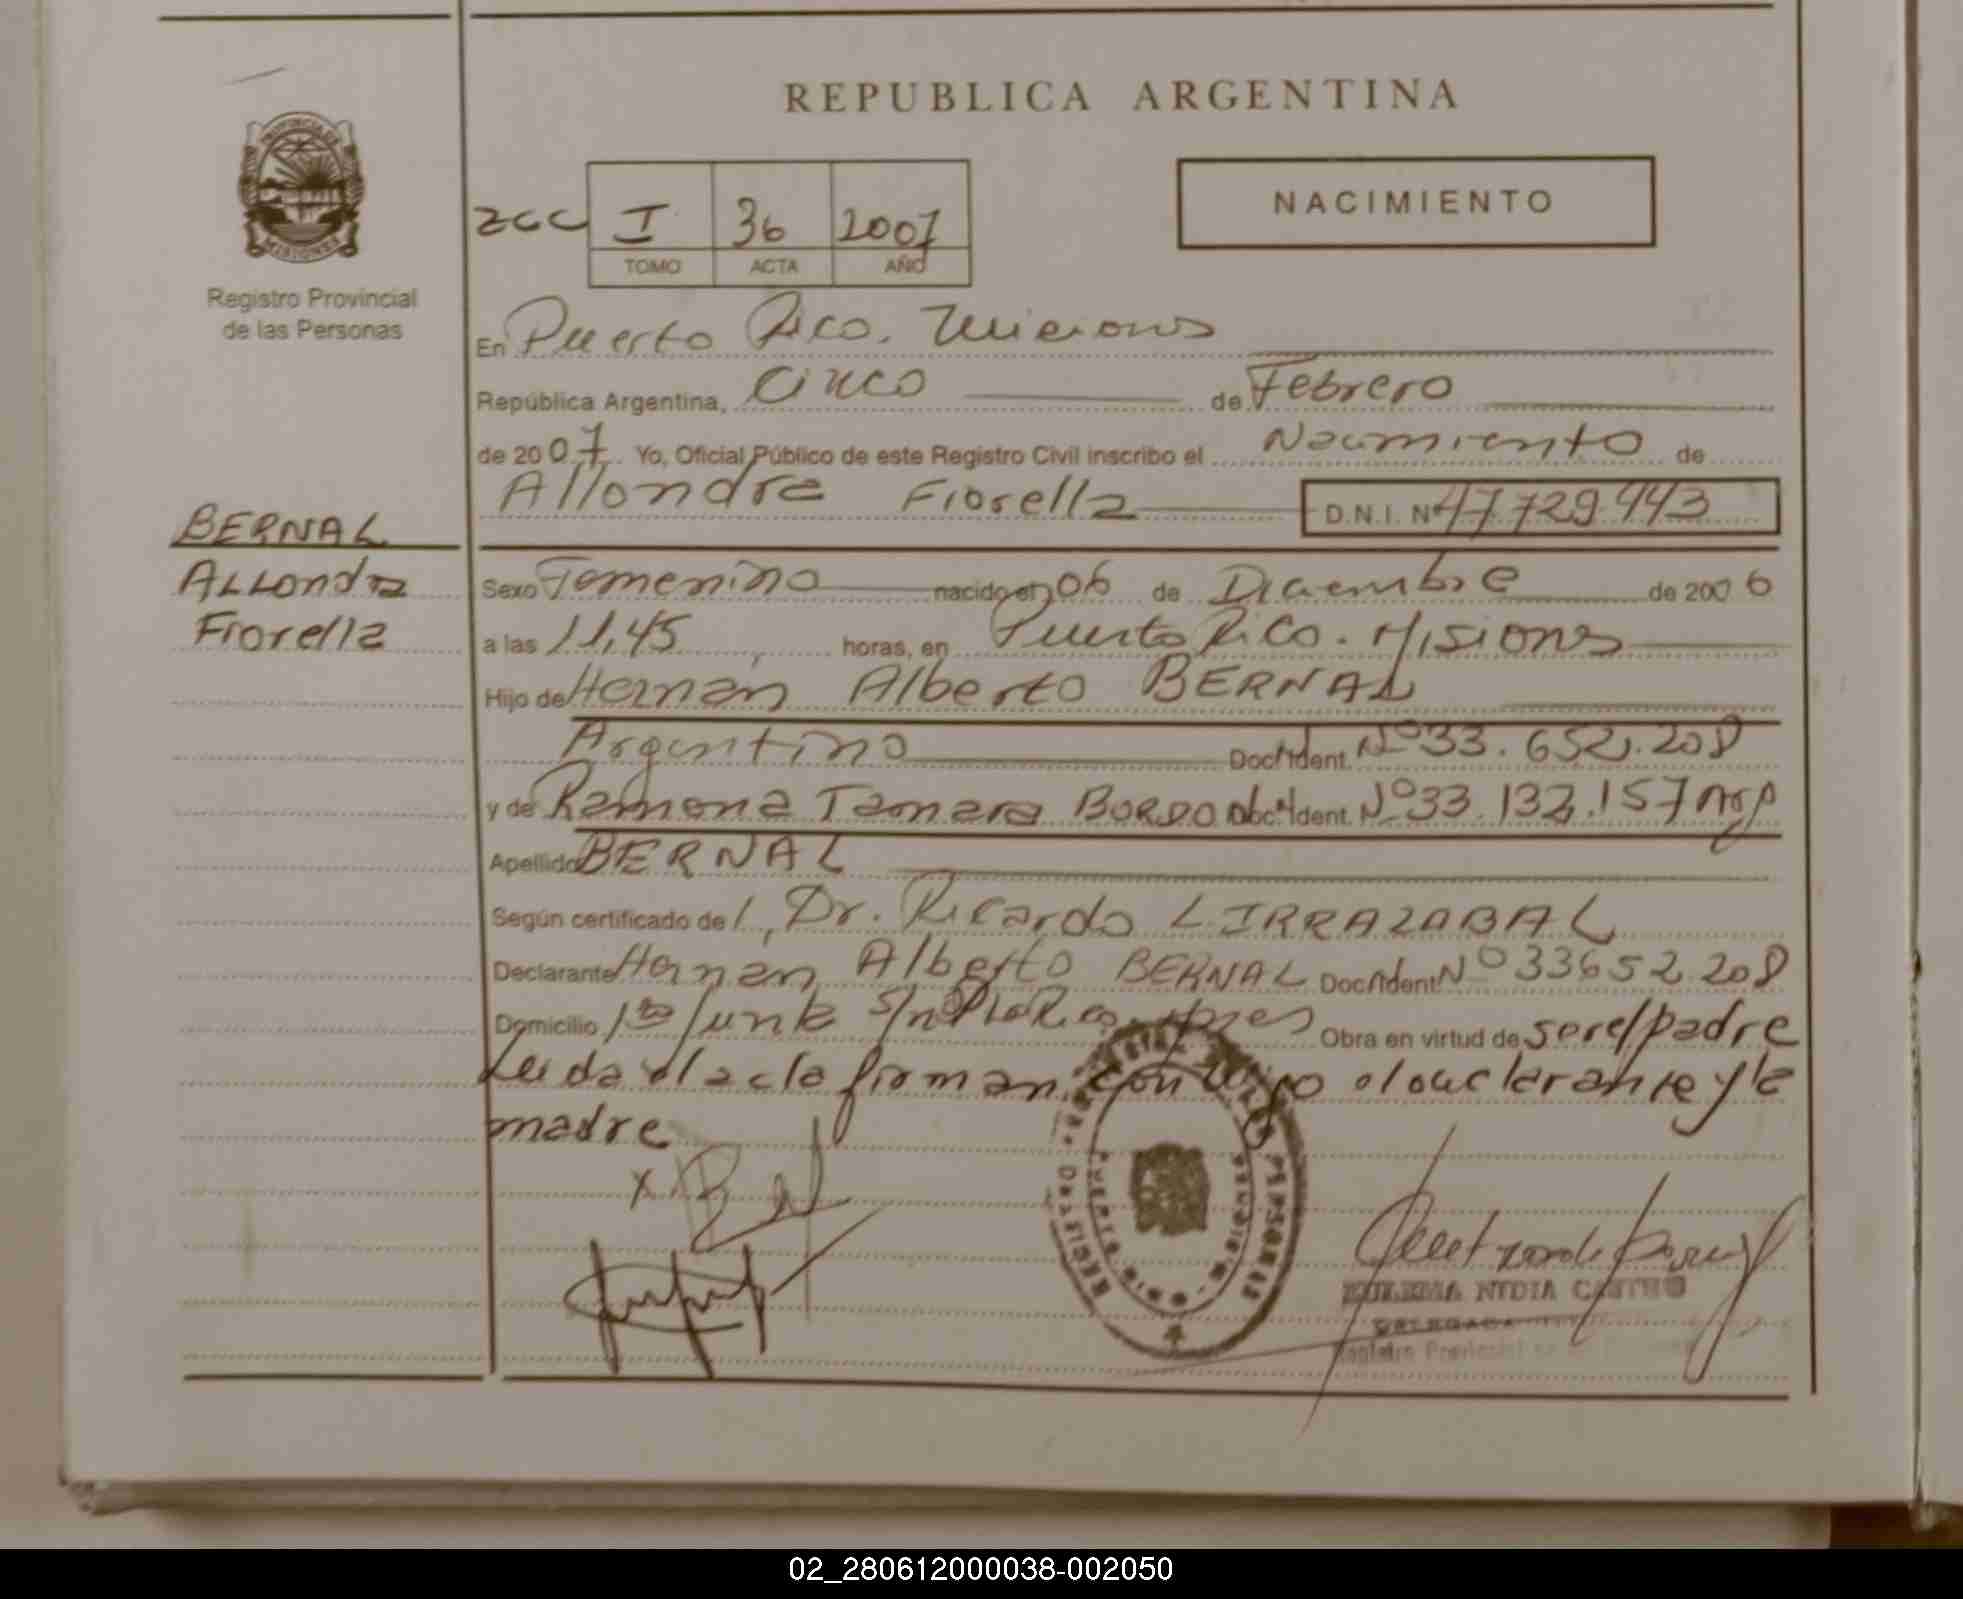 REPUBLICA ARGENTINA
PROVINCIA DE
MISIONES
Registro Provincial
de las Personas
NACIMIENTO
2CC I 36 2007
TOMO ACTA AÑO
En Puerto Rico. Misiones
República Argentina, Cinco de Febrero
de 2007 Yo, Oficial Público de este Registro Civil inscribo el Nacimiento de
Allondra Fiorella D.N.I. Nº 47.729.443
BERNAL
Allondra
Fiorella
Sexo Femenino nacido el 06 de Diciembre de 2006
a las 11,45 horas, en Puerto Rico. Misiones
Hijo de Hernan Alberto BERNAL
Argentino Doc. Ident. Nº 33.652.208
y de Ramona Tamara Doc. Ident. Nº 33.132.157 Arg
Apellido BERNAL
Según certificado de 1, Dr. Ricardo LIRRAZABAL
Declarante Hernan Alberto BERNAL Doc. Ident. Nº 33652.208
Domicilio 1ra Junta S/n Pto Rico. Mnes Obra en virtud de ser el padre
Leida el acta firman conmigo el declarante y la
madre
x
NIDIA CASTRO
DELEGADA
Registro Provincial
02_280612000038-002050